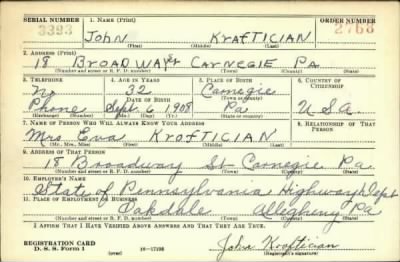 SERIAL NUMBER 1. NAME (Print) ORDER NUMBER
3393 John KRAFTICIAN 2768
(First) (Middle) (Last)
2. ADDRESS (Print)
18 BROADWAY St CARNEGIE PA.
(Number and street or R. F. D. number) (Town) (County) (State)
3. TELEPHONE 4. AGE IN YEARS 5. PLACE OF BIRTH 6. COUNTRY OF CITIZENSHIP
No 32 Carnegie
DATE OF BIRTH (Town or county)
Phone Sept. 6 1908 Pa U.S.A.
(Exchange) (Number) (Mo.) (Day) (Yr.) (State or country)
7. NAME OF PERSON WHO WILL ALWAYS KNOW YOUR ADDRESS 8. RELATIONSHIP OF THAT PERSON
Mrs Eva KROFTICIAN
(Mr., Mrs., Miss) (First) (Middle) (Last)
9. ADDRESS OF THAT PERSON
18 Broadway St Carnegie Pa.
(Number and street or R. F. D. number) (Town) (County) (State)
10. EMPLOYER'S NAME
State of Pennsylvania Highway Dept
11. PLACE OF EMPLOYMENT OR BUSINESS
Oakdale Allegheny Pa
(Number and street or R. F. D. number) (Town) (County) (State)
I AFFIRM THAT I HAVE VERIFIED ABOVE ANSWERS AND THAT THEY ARE TRUE.
REGISTRATION CARD John Kroftician
D. S. S. Form 1 (over) 16—17105 (Registrant's signature)